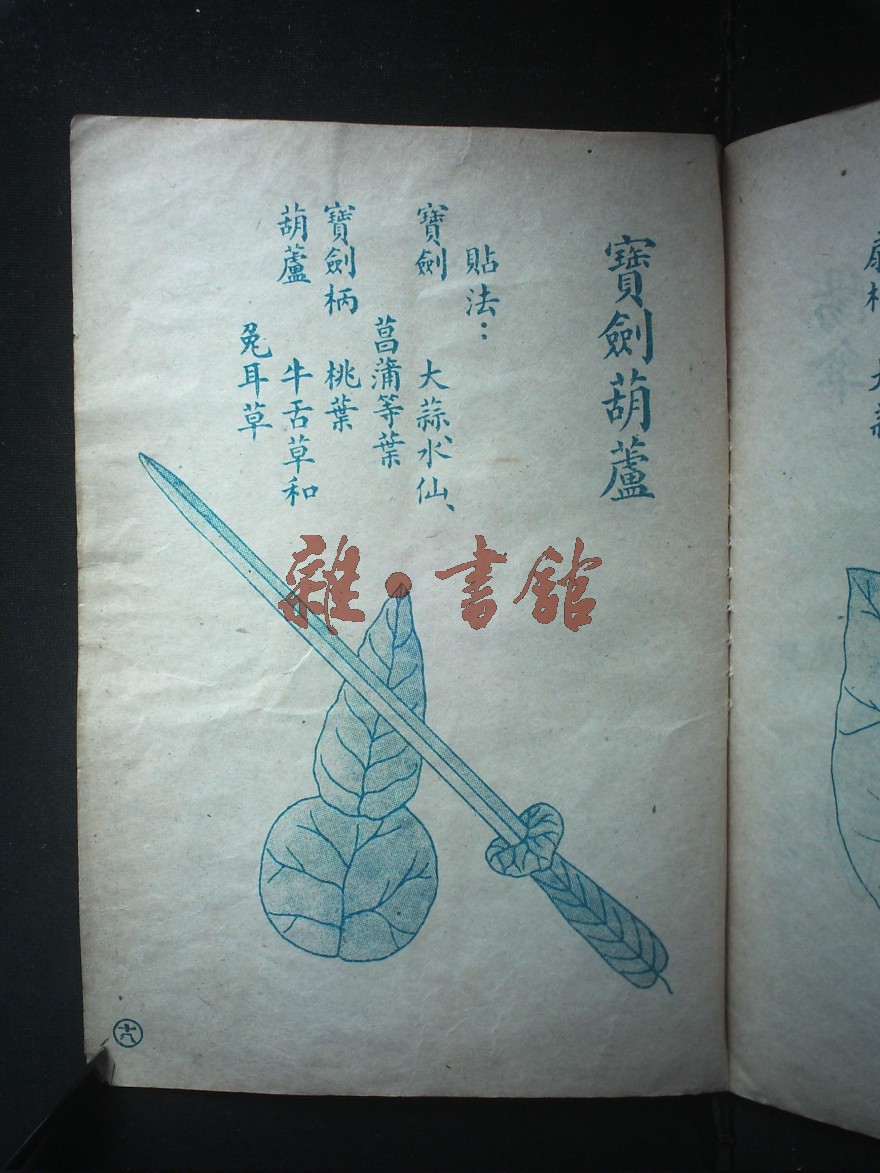 寶劍葫蘆
貼法：
寶劍 大蒜、水仙、
菖蒲等葉
寶劍柄 桃葉
葫蘆 牛舌草和
兔耳草
雜·書舘
十八